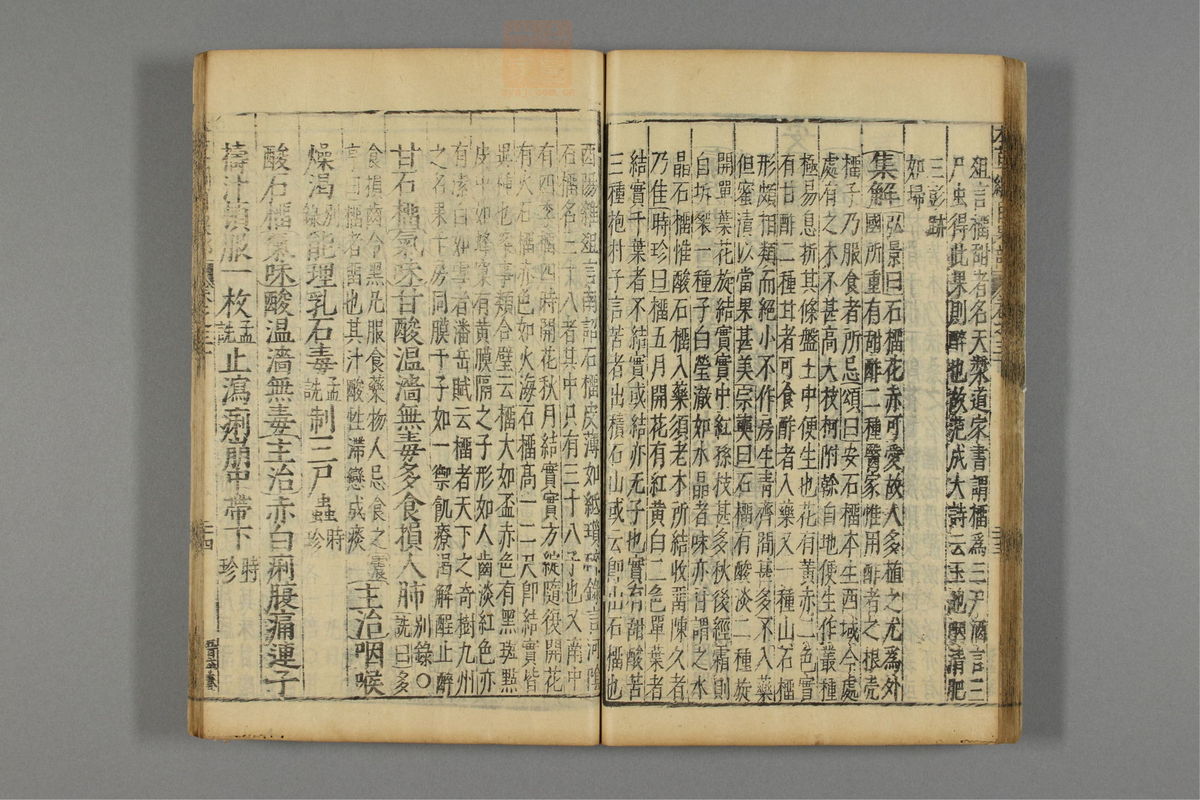 俎言榴甜者名天漿道家書謂榴爲三尸酒言三
尸虫得此果則醉也故范成大詩云玉池嚥清肥
三彭跡
如掃
集解弘景曰石榴花赤可愛故人多植之尤爲外
國所重有甜酢二種醫家惟用酢者之根壳
榴子乃服食者所忌頌曰安石榴本生西域今處
處有之木不甚高大枝柯附榦自地便生作叢種
極易息折其條盤土中便生也花有黃赤二色實
有甘酢二種甘者可食酢者入藥又一種山石榴
形頗相類而絕小不作房生青齊間甚多不入藥
但蜜漬以當果甚美宗奭曰石榴有酸淡二種旋
開單葉花旋結實實中紅孫枝甚多秋後經霜則
自坼裂一種子白瑩澈如水晶者味亦甘謂之水
晶石榴惟酸石榴入藥須老木所結收畱陳久者
乃佳時珍曰榴五月開花有紅黃白三色單葉者
結實千葉者不結實或結亦无子也實有甜酸苦
三種抱朴子言苦者出積石山或云即山石榴也
酉陽雜俎言南詔石榴皮薄如紙瑣碎錄言河陰
石榴名三十八者其中只有三十八子也又南中
有四季榴四時開花秋月結實實方綻隨復開花
有火石榴赤色如火海石榴高一二尺即結實皆
異種也案事類合璧云榴大如盃赤色有黑斑點
皮中如蜂窠有黃膜隔之子形如人齒淡紅色亦
有潔白如雪者潘岳賦云榴者天下之奇樹九州
之名果千房同膜千子如一禦飢療渴解酲止醉
甘石榴氣味甘酸温濇無毒多食損人肺别錄〇詵曰多
食損齒令黑凡服食藥物人忌食之震
亨曰榴者畱也其汁酸性滯戀成痰主治咽喉
燥渴别錄能理乳石毒孟詵制三尸蟲時珍
酸石榴氣味酸温濇無毒主治赤白痢腹痛連子
擣汁頓服一枚孟詵止瀉痢崩中帶下時珍
二十三
二十四